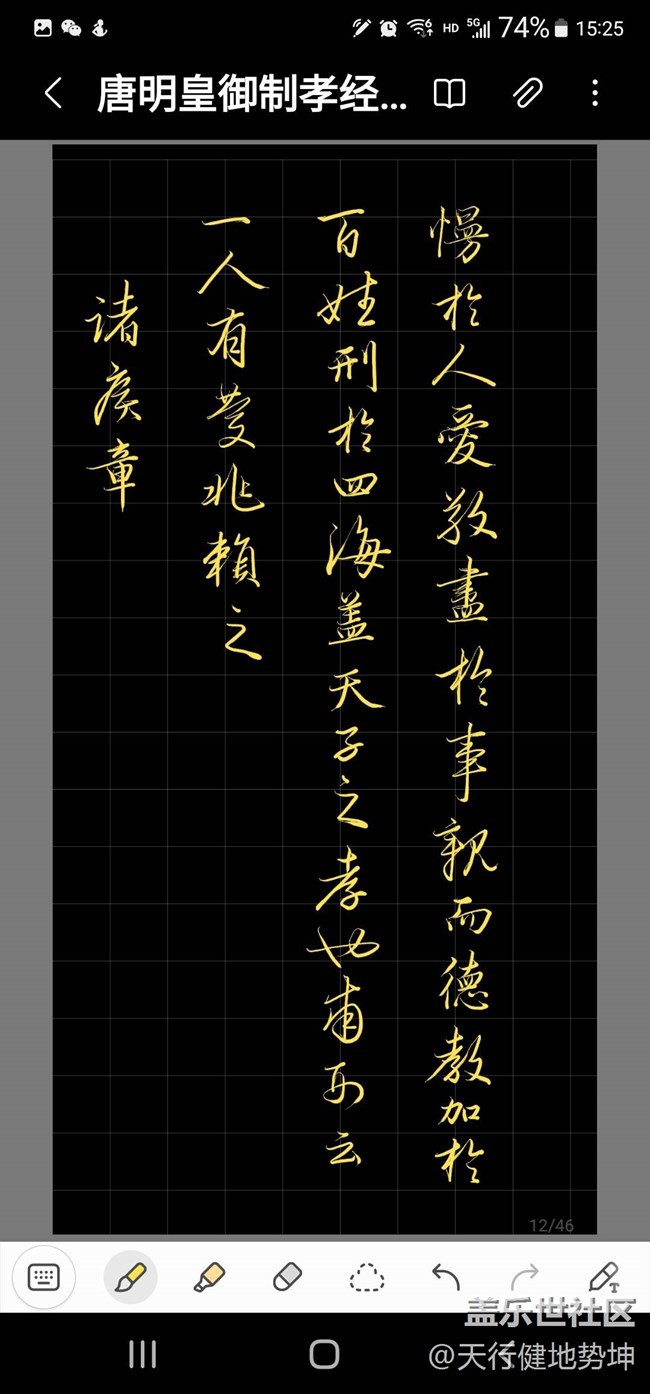 15:25
74%
HD
5G
唐明皇御制孝经...
慢於人愛敬盡於事親而德教加於
百姓刑於四海盖天子之孝也甫刑云
一人有慶兆賴之
诸侯章
12/46
盖乐世社区
@天行健地势坤